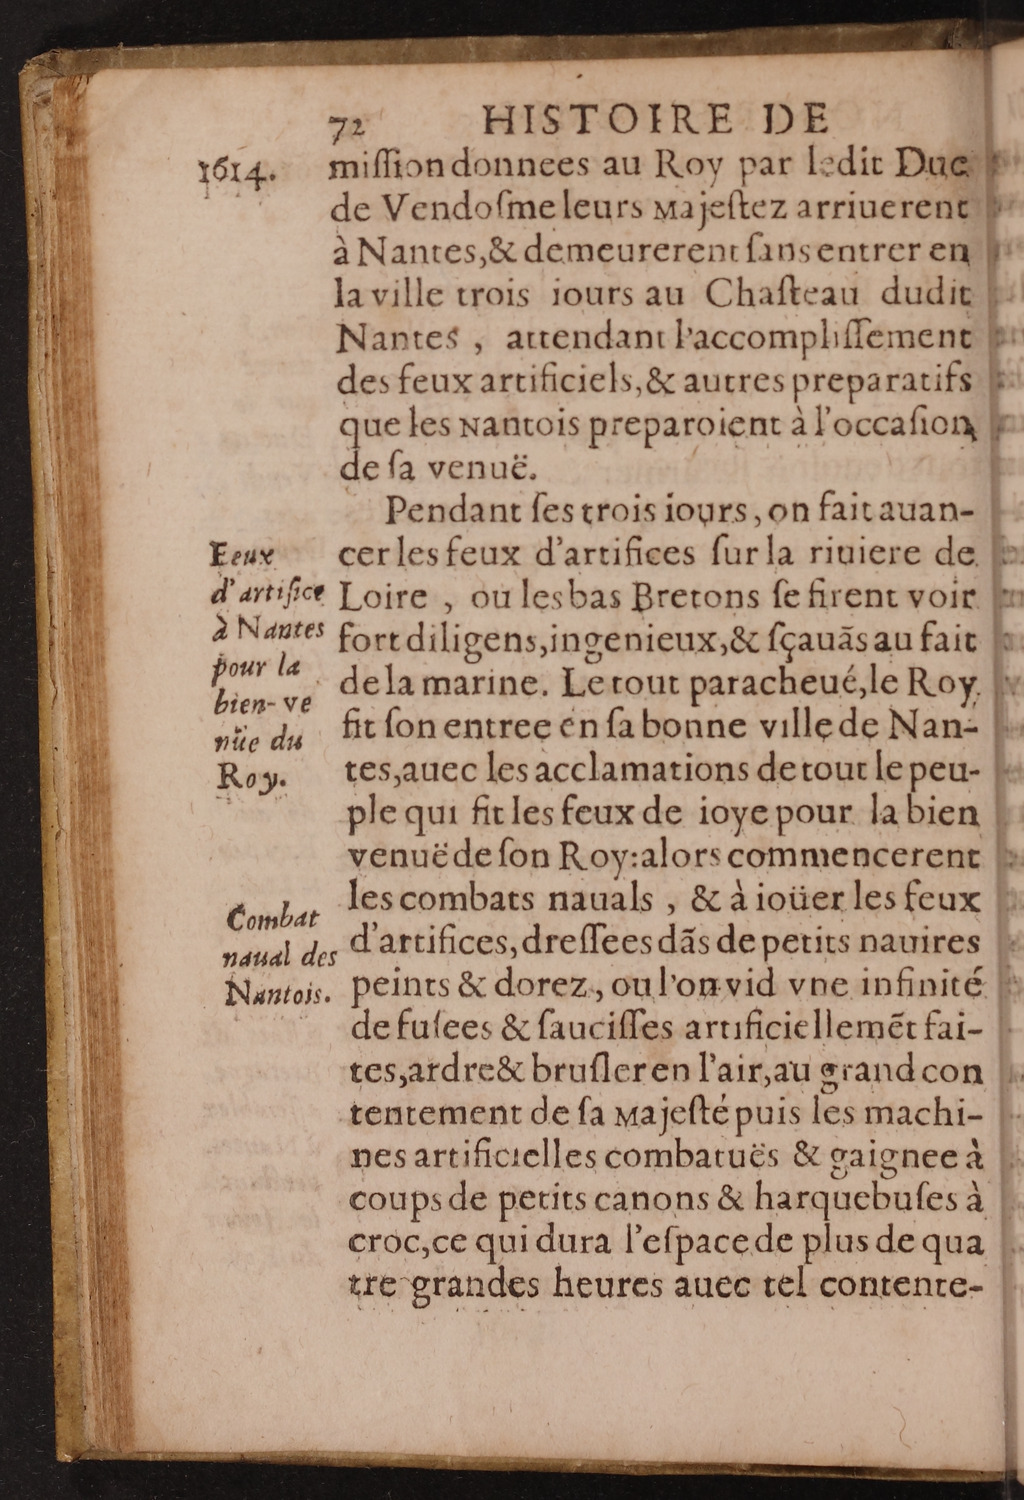 72 HISTOIRE DE
1614.
miſſion donnees au Roy par ledit Duc
de Vendoſme leurs Majeſtez arriuerent
à Nantes, & demeurerent ſans entrer en
la ville trois iours au Chaſteau dudit
Nantes , attendant l'accompliſſement
des feux artificiels, & autres preparatifs
que les Nantois preparoient à l'occaſion
de ſa venuë.
Pendant ſes trois iours, on fait auan-
cer les feux d'artifices ſur la riuiere de
Loire , ou les bas Bretons ſe firent voir
fort diligens, ingenieux, & ſçauãs au fait
de la marine. Le tout paracheué, le Roy
fit ſon entree en ſa bonne ville de Nan-
tes, auec les acclamations de tout le peu-
ple qui fit les feux de ioye pour la bien
venuë de ſon Roy: alors commencerent
les combats nauals , & à ioüer les feux
d'artifices, dreſſees dãs de petits nauires
peints & dorez, ou l'on vid vne infinité
de fuſees & ſauciſſes artificiellemẽt fai-
tes, ardre & bruſler en l'air, au grand con
tentement de ſa Majeſté puis les machi-
nes artificielles combatuës & gaignee à
coups de petits canons & harquebuſes à
croc, ce qui dura l'eſpace de plus de qua
tre grandes heures auec tel contente-
Eeux
d'artifice
à Nantes
pour la
bien-ve
nüe du
Roy.
Combat
naual des
Nantois.